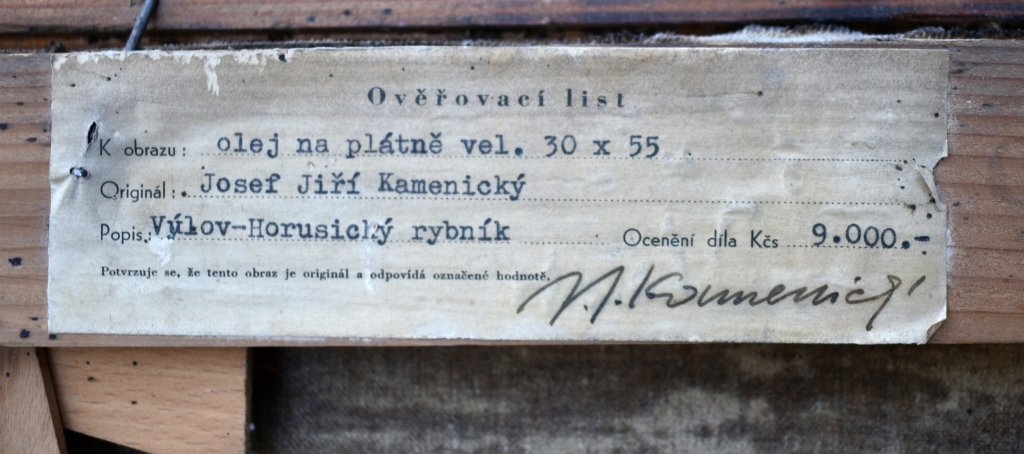 Ověřovací list
K obrazu: olej na plátně vel. 30 x 55
Originál: Josef Jiří Kamenický
Popis: Výlov-Horusický rybník Ocenění díla Kčs 9.000.-
Potvrzuje se, že tento obraz je originál a odpovídá označené hodnotě.
J. J. Kamenický